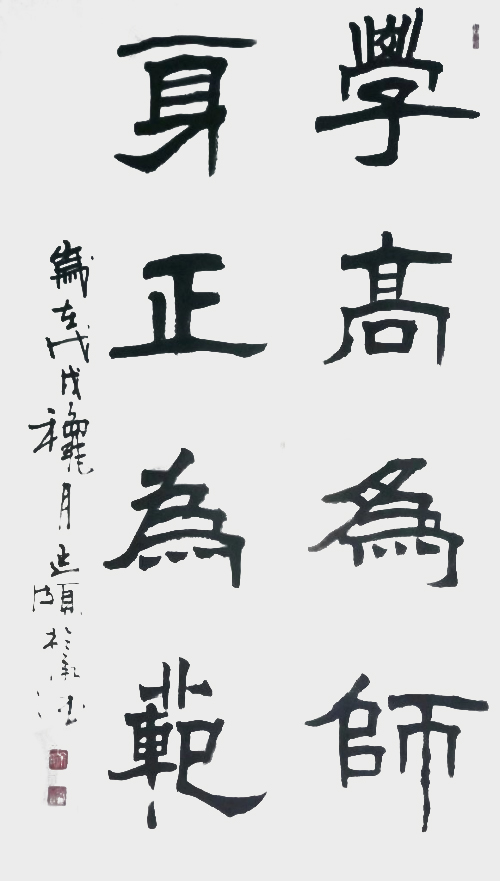 學高為師
身正為範
歲在戊戌 月